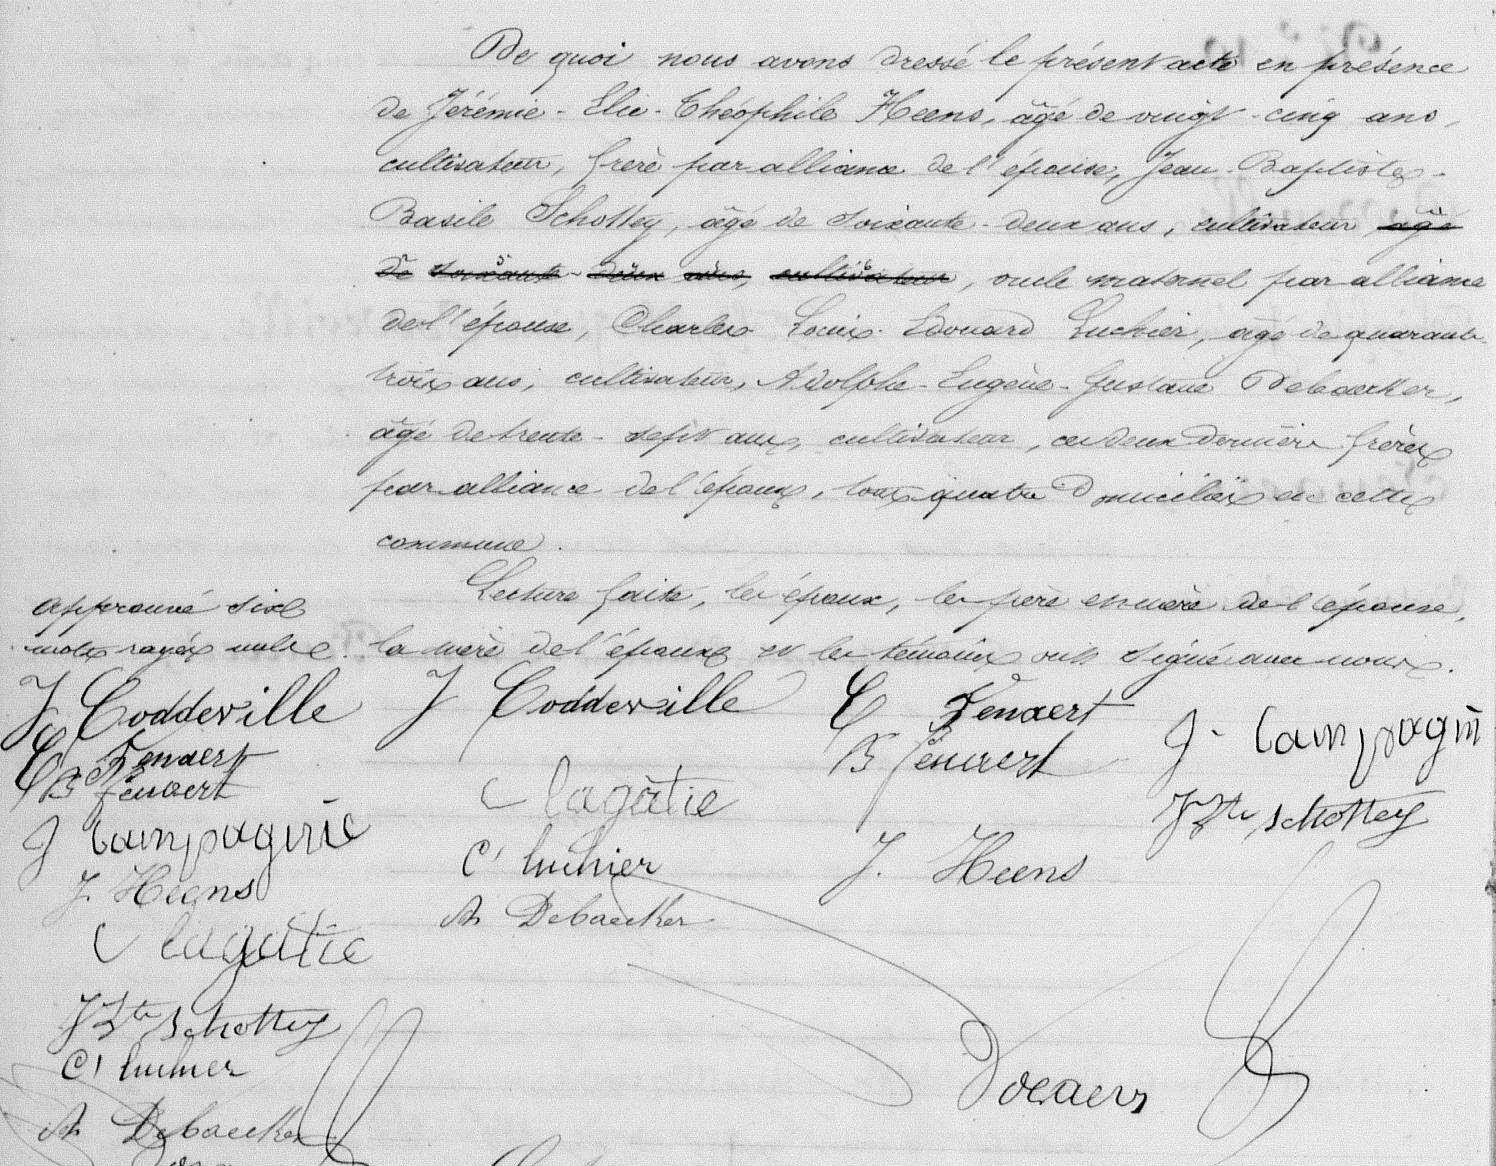 De quoi nous avons dressé le présent acte en présence
de Jérémie-Elie-Théophile Heens, âgé de vingt-cinq ans,
cultivateur, frère par alliance de l'épouse, Jean-Baptiste-
Basile Schottey, âgé de soixante-deux ans, cultivateur âgé
de soixante-deux ans, cultivateur, oncle maternel par alliance
de l'épouse, Charles Louis Edouard Luchier, âgé de quarante-
trois ans, cultivateur, Adolphe-Eugène-Gustave Debaecker,
âgé de trente-sept ans, cultivateur, ces deux derniers frères
par alliance de l'époux, tous quatre domiciliés en cette
commune.
Lecture faite, les époux, les père et mère de l'épouse,
la mère de l'époux et les témoins ont signé avec nous.
approuvé six
mots rayés nuls
J Coddeville J Coddeville C Fenaert J. Campagn
C Fenaert
B Fenaert
B Fenaert
C lagatie
J Bte Schottey
J Campagnie
C l luchier
J. Heens
J. Heens
A Debaecker
C lagatie
J Bte Schottey
C l luchier
A Debaecker